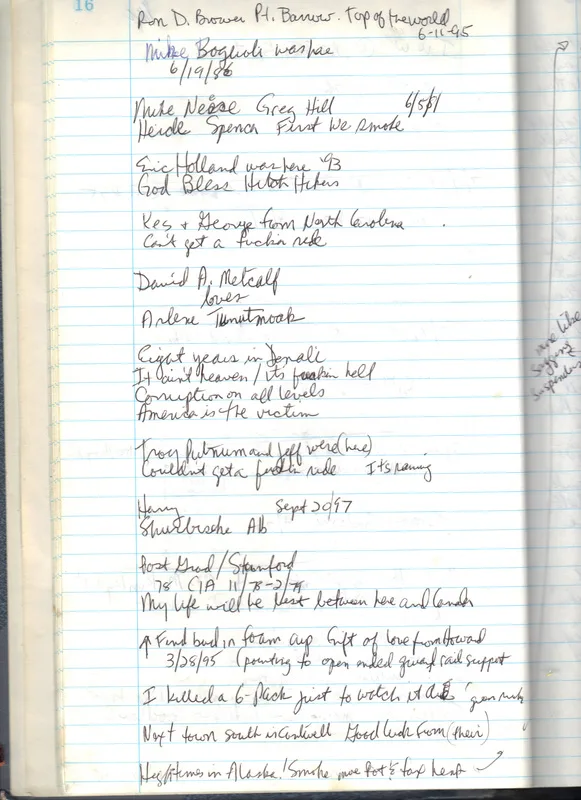 16
Ron D. Brower Pt. Barrow. Top of the world
6-11-95
Mike Boglioli was here
6/19/86
Mike Neese Greg Hill 6/5/81
Heide Spencer First We smoke
Eric Holland was here '93
God Bless Hitch Hikers
Kes + George from North Carolina
Can't get a fuckin ride
David A. Metcalf
loves
Arlene
Eight years in Denali
It ain't heaven / its fuckin hell
Corruption on all levels
America is the victim
Troy Putnum and Jeff were (here)
Couldn't get a fuckin ride Its raining
Harry Sept 20/97
Ab
Post Grad / Stanford
78 CIA 11/78-2/79
My life will be between here and Canada
↑ Find bud in foam cup Gift of love from Howard
3/28/95 (pointing to open ended guard rail support
I killed a 6-Pack just to watch it die
Next town south is Cantwell Good luck from (their)
High times in Alaska! Smoke more Pot & tax
more like
sagging
suspenders